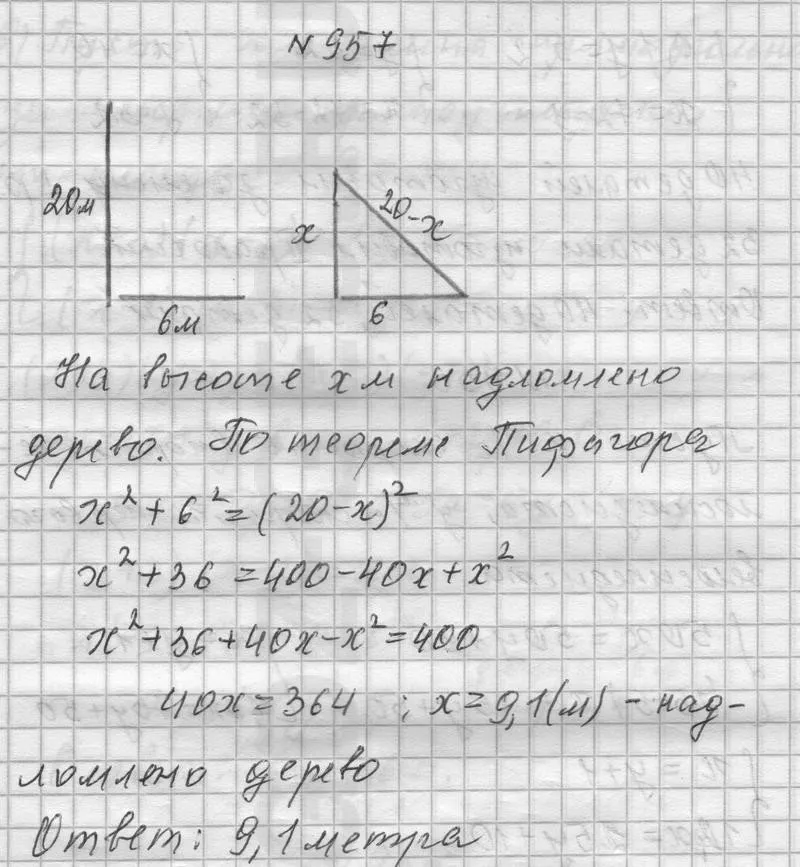 N 957
20м
6м
x
20-x
6
На высоте x м надломлено
дерево. По теореме Пифагора
x² + 6² = (20-x)²
x² + 36 = 400 - 40x + x²
x² + 36 + 40x - x² = 400
40x = 364 ; x = 9,1(м) - над-
ломлено дерево
Ответ: 9,1 метра